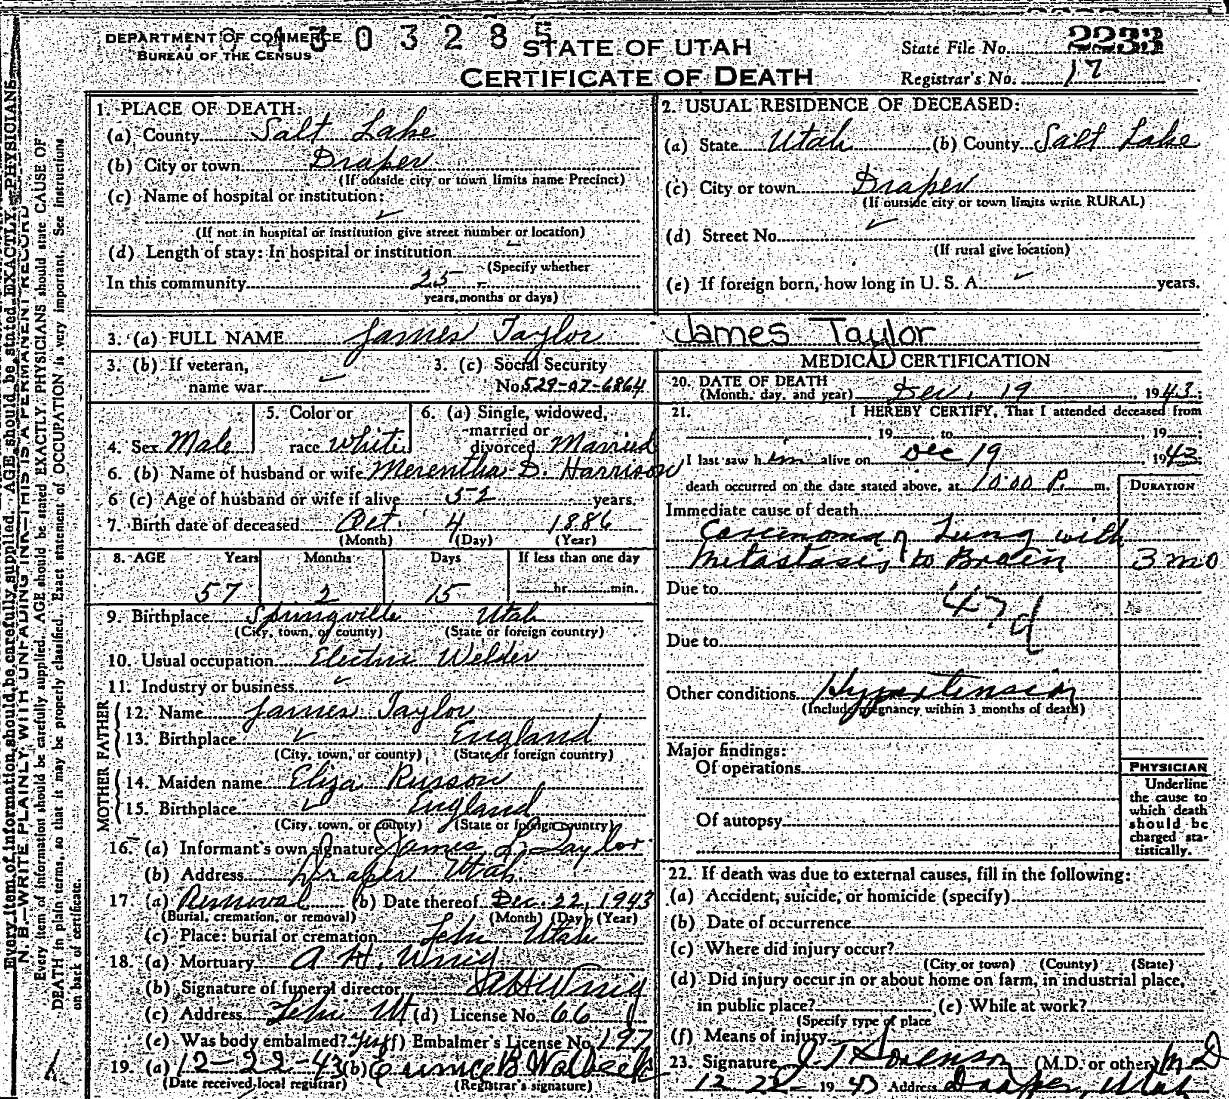 DEPARTMENT OF COMMERCE
BUREAU OF THE CENSUS
303285
STATE OF UTAH
CERTIFICATE OF DEATH
State File No. 2233
Registrar's No. 17
Every item of information should be carefully supplied. AGE should be stated EXACTLY. PHYSICIANS
N. B.—WRITE PLAINLY, WITH UNFADING INK—THIS IS A PERMANENT RECORD
Every item of information should be carefully supplied. AGE should be stated EXACTLY. PHYSICIANS should state CAUSE OF
DEATH in plain terms, so that it may be properly classified. Exact statement of OCCUPATION is very important. See instructions
on back of certificate.
1. PLACE OF DEATH:
(a) County Salt Lake
(b) City or town Draper
(If outside city or town limits name Precinct)
(c) Name of hospital or institution:
(If not in hospital or institution give street number or location)
(d) Length of stay: In hospital or institution
(Specify whether
In this community 25
years, months or days)
2. USUAL RESIDENCE OF DECEASED:
(a) State Utah (b) County Salt Lake
(c) City or town Draper
(If outside city or town limits write RURAL)
(d) Street No.
(If rural give location)
(e) If foreign born, how long in U. S. A. years.
3. (a) FULL NAME James Taylor James Taylor
3. (b) If veteran,
name war
3. (c) Social Security
No. 529-07-6864
4. Sex Male
5. Color or
race White
6. (a) Single, widowed,
married or
divorced Married
6. (b) Name of husband or wife Merentha D. Harrison
6 (c) Age of husband or wife if alive 52 years.
7. Birth date of deceased Oct. 4 1886
(Month) (Day) (Year)
8. AGE Years Months Days If less than one day
57 2 15 hr. min.
9. Birthplace Springville Utah
(City, town, or county) (State or foreign country)
10. Usual occupation Electric Welder
11. Industry or business
FATHER
12. Name James Taylor
13. Birthplace England
(City, town, or county) (State or foreign country)
MOTHER
14. Maiden name Eliza Russon
15. Birthplace England
(City, town, or county) (State or foreign country)
16. (a) Informant's own signature James L. Taylor
(b) Address Draper Utah
17 (a) Removal (b) Date thereof Dec. 22, 1943
(Burial, cremation, or removal) (Month) (Day) (Year)
(c) Place: burial or cremation Lehi Utah
18. (a) Mortuary A. H. Wing
(b) Signature of funeral director Wing
(c) Address Lehi Ut (d) License No. 66
(e) Was body embalmed? Yes (f) Embalmer's License No. 197
19. (a) 12-22-43 (b)
(Date received local registrar) (Registrar's signature)
MEDICAL CERTIFICATION
20. DATE OF DEATH
(Month, day, and year) Dec. 19, 1943;
21. I HEREBY CERTIFY, That I attended deceased from
, 19 to , 19 ;
I last saw him alive on Dec 19 1943
death occurred on the date stated above, at 10:00 P. m.
DURATION
Immediate cause of death
Carcinoma of Lung with
Metastasis to Brain 3 mo
Due to
47d
Due to
Other conditions Hypertension
(Include pregnancy within 3 months of death)
Major findings:
Of operations
Of autopsy
PHYSICIAN
Underline
the cause to
which death
should be
charged sta-
tistically.
22. If death was due to external causes, fill in the following:
(a) Accident, suicide, or homicide (specify)
(b) Date of occurrence
(c) Where did injury occur?
(City or town) (County) (State)
(d) Did injury occur in or about home on farm, in industrial place,
in public place? (e) While at work?
(Specify type of place
(f) Means of injury
23. Signature J. T. Sorenson (M.D. or other) M D
12 22 1943 Address Draper, Utah